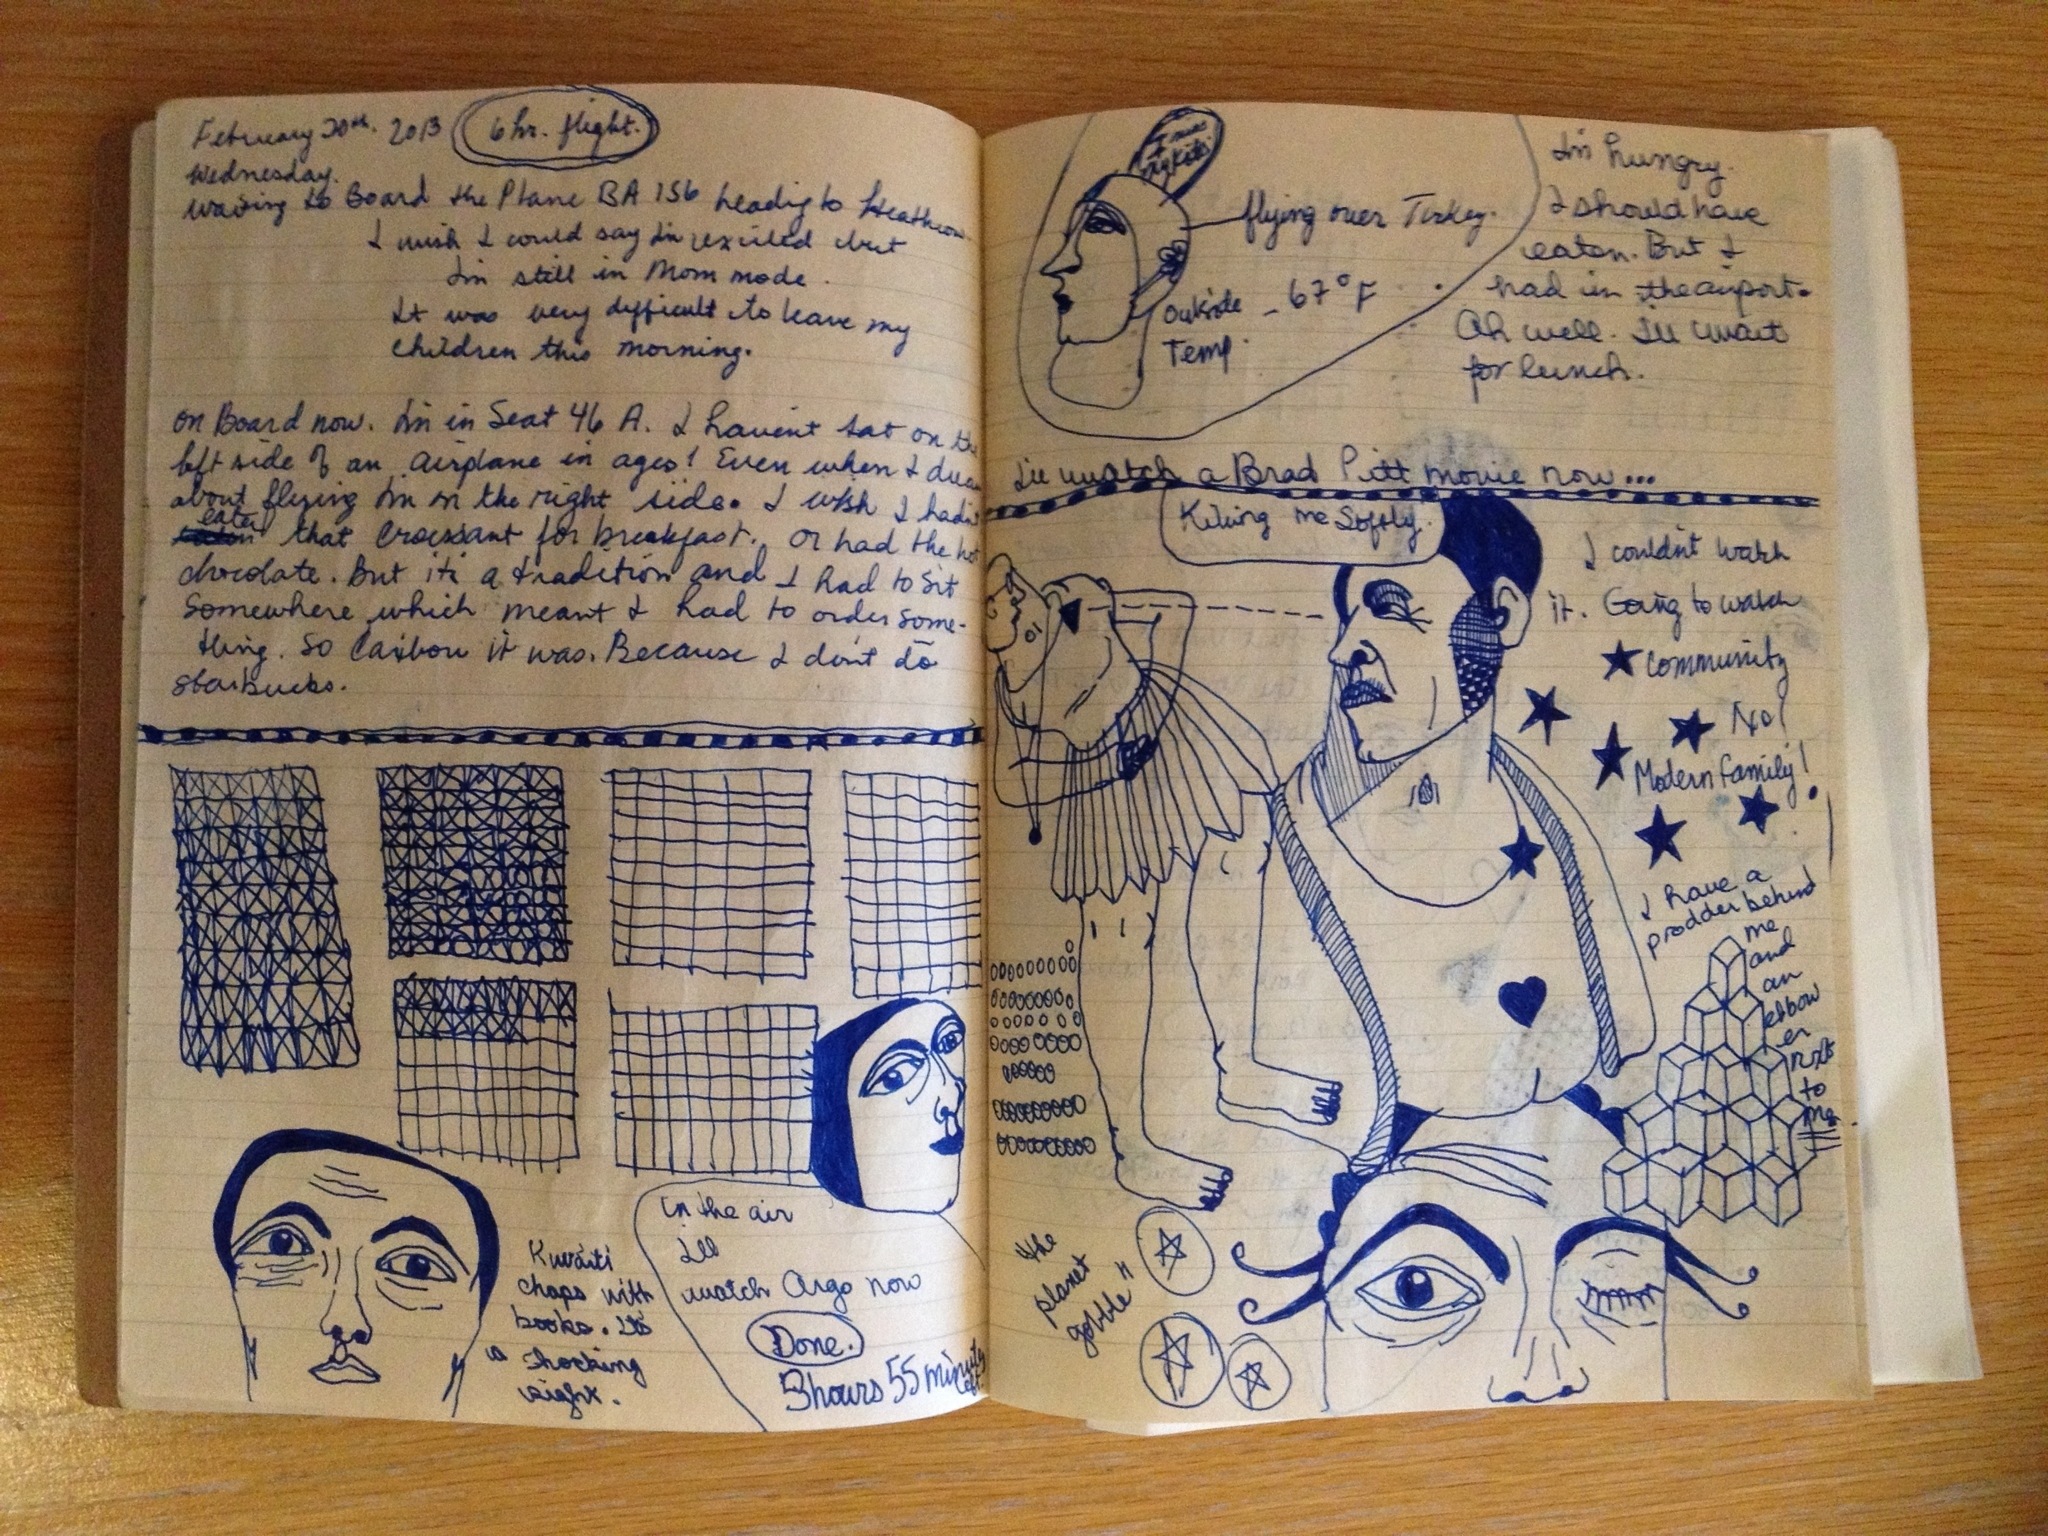 February 20th. 2013
6 hr. flight.
Wednesday.
waiting to Board the Plane BA 156 heading to Heathrow
I wish I could say I'm excited but
I'm still in Mom mode.
It was very difficult to leave my
children this morning.
on Board now. I'm in Seat 46 A. I haven't sat on the
left side of an airplane in ages! Even when I dream
about flying I'm on the right side. I wish I hadn't
eaten
that croissant for breakfast. Or had the hot
chocolate. But it's a tradition and I had to sit
somewhere which meant I had to order some-
thing. So Caribou it was. Because I don't do
starbucks.
Kuwaiti
chaps with
books. It's
a shocking
sight.
In the air
I'll
watch Argo now
Done.
3hours 55 minutes
left.
flying over Turkey.
outside - 67°F
Temp.
I'm hungry.
I should have
eaten. But I
had in the airport.
Oh well. I'll wait
for lunch.
I'll watch a Brad Pitt movie now...
Killing me Softly.
I couldn't watch
it. Going to watch
Community
No!
Modern Family!
I have a
prodder behind
me
and
an
elbower
next
to
me.
"the
planet
gobble"